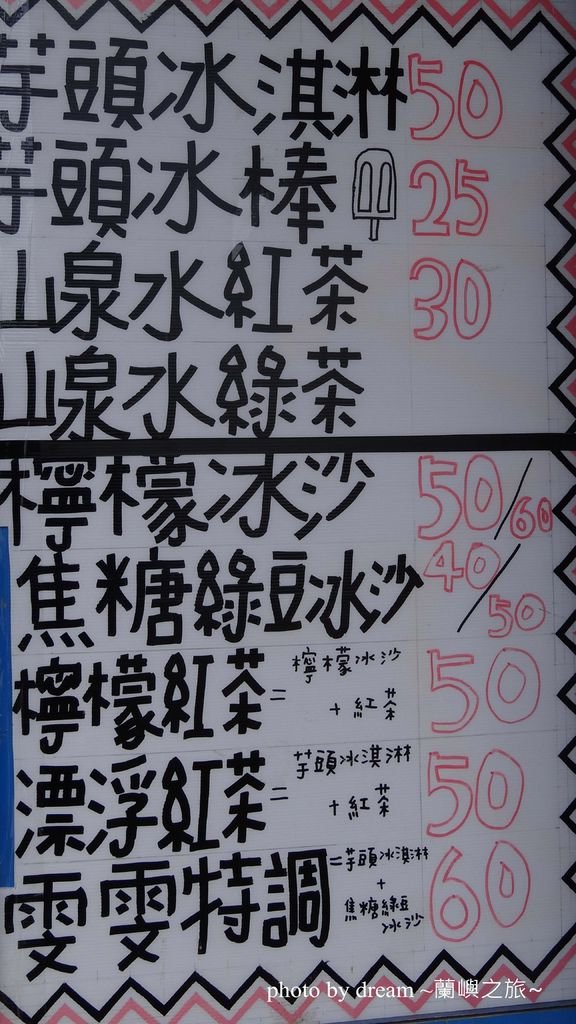 芋頭冰淇淋 50
芋頭冰棒 25
山泉水紅茶 30
山泉水綠茶
檸檬冰沙 50/60
焦糖綠豆冰沙 40/50
檸檬紅茶=檸檬冰沙+紅茶 50
漂浮紅茶=芋頭冰淇淋+紅茶 50
雯雯特調=芋頭冰淇淋+焦糖綠豆冰沙 60
photo by dream ~蘭嶼之旅~